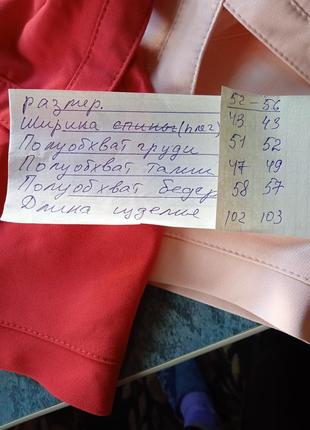 размер. 52 - 56
Ширина спины (плеч) 43 43
Полуобхват груди 51 52
Полуобхват талии 47 49
Полуобхват бедер 58 57
Длина изделия 102 103